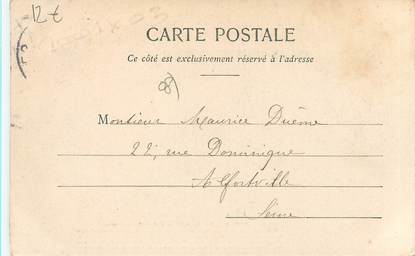 12 €
CARTE POSTALE
Ce côté est exclusivement réservé à l'adresse
Monsieur Maurice Duême
22, rue Dominique
Alfortville
Seine